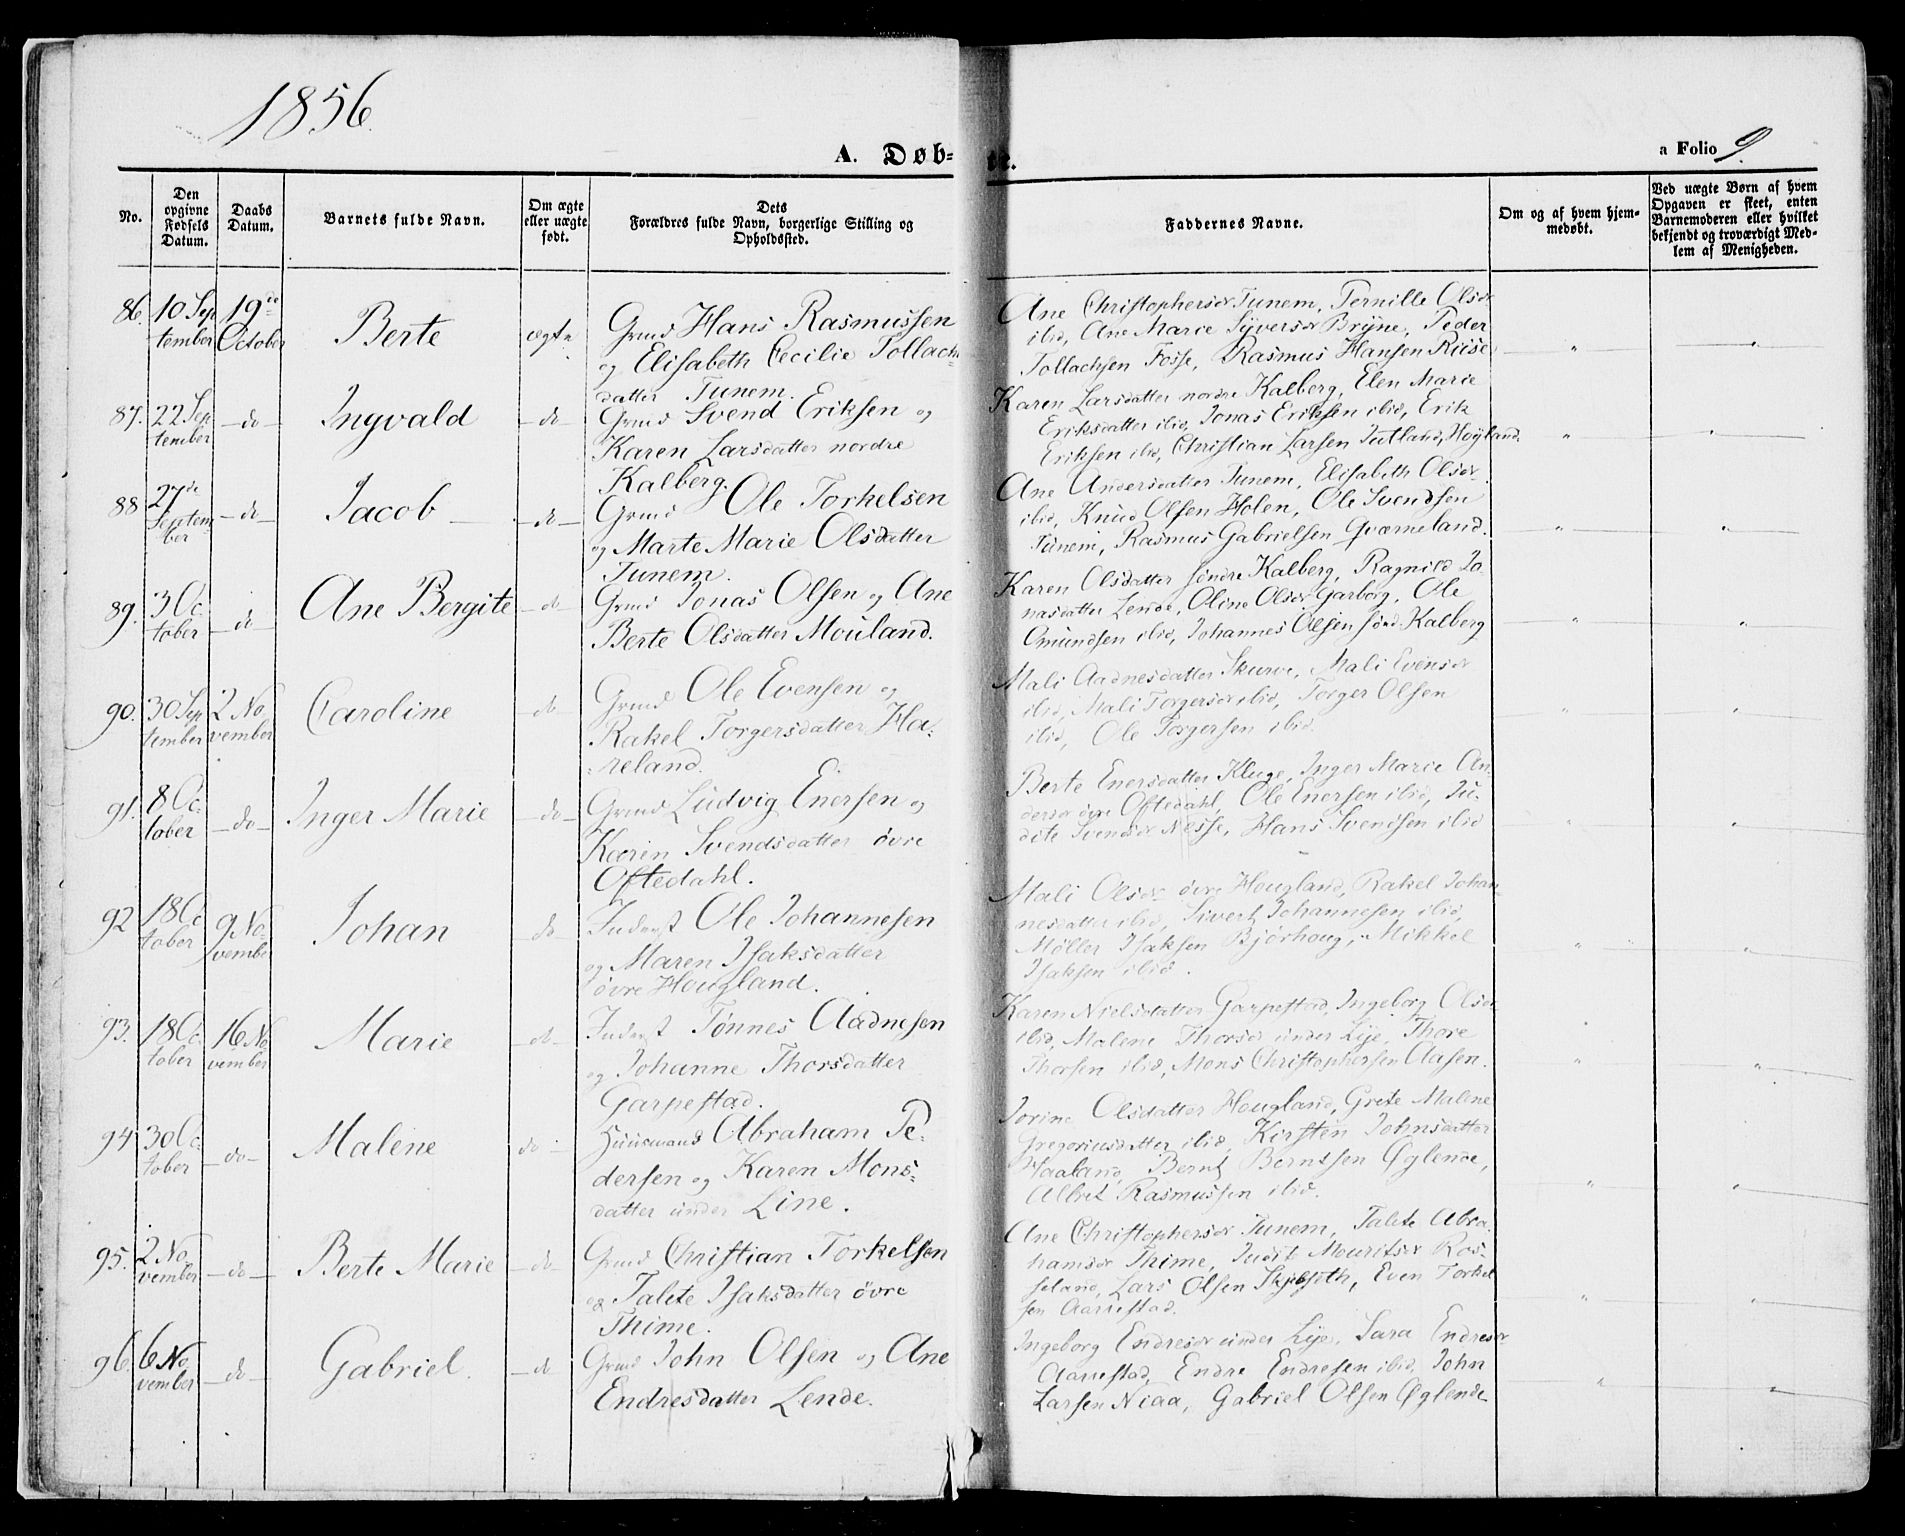 1856.
A. Døb-
te.
a Folio 9.
No.
Den opgivne Fødsels Datum.
Daabs Datum.
Barnets fulde Navn.
Om ægte eller uægte født.
Dets Forældres fulde Navn, borgerlige Stilling og Opholdssted.
Faddernes Navne.
Om og af hvem hjemmedøbt.
Ved uægte Børn af hvem Opgaven er skeet, enten Barnemoderen eller hvilket bekjendt og troværdigt Medlem af Menigheden.
86. 10 Sep 19de
tember October Berte ægte
Grmd Hans Rasmussen
og Elisabeth Cecilie Tollachs-
datter Tunem.
Ane Christophersdr Tunem, Pernille Olsdr
ibid, Ane Marie Syversdr Bryne, Peder
Tollachsen Fosse, Rasmus Hansen Riise
" "
87. 22 Sep
tember -do- Ingvald -do-
Grmd Svend Eriksen og
Karen Larsdatter nordre
Kalberg.
Karen Larsdatter nordre Kalberg, Elen Marie
Eriksdatter ibid, Jonas Eriksen ibid, Erik
Eriksen ibid, Christian Larsen Jutland, Høyland.
" "
88 27de
Septem-
ber -do- Jacob -do-
Grmd Ole Torkelsen
og Marte Marie Olsdatter
Tunem.
Ane Andersdatter Tunem, Elisabeth Olsdr
ibid, Knud Olsen Holen, Ole Svendsen
Tunem, Rasmus Gabrielsen Qværneland.
" "
89. 3 Oc-
tober -do- Ane Bergite -do-
Grmd Jonas Olsen og Ane
Berte Olsdatter Mouland.
Karen Olsdatter søndre Kalberg, Ragnild Jo
nasdatter Lende, Oline Olsdr Garborg, Ole
Omundsen ibid, Johannes Olsen sønd. Kalberg
" "
90. 30 Sep 2 No
tember vember Caroline -do-
Grmd Ole Evensen og
Rakel Torgersdatter Ha-
reland.
Mali Aadnesdatter Skurve, Mali Evensdr
ibid, Mali Torgersdr ibid, Torger Olsen
ibid, Ole Torgersen ibid.
" "
91. 8 Oc-
tober -do- Inger Marie -do-
Grmd Ludvig Enersen og
Karen Svendsdatter øvre
Oftedahl.
Berte Enersdatter Kluge, Inger Marie An-
dersdr øvre Oftedahl, Ole Enersen ibid, Ju-
dite Svendsdr Nesse, Hans Svendsen ibid
" "
92 18 Oc 9 No-
tober vember Johan do
Inderst Ole Johannesen
og Maren Isaksdatter
øvre Hougland.
Mali Olsdr øvre Hougland, Rakel Johan-
nesdatter ibid, Sivert Johannesen ibid,
Møller Isaksen Bjørhoug, Mikkel
Isaksen ibid.
" "
93. 18 Oc 16 No
tober vember Marie do
Inderst Tønnes Aadnesen
og Johanne Thorsdatter
Garpestad.
Karen Nielsdatter Garpestad, Ingeborg Olsdr
ibid, Malene Thorsdr under Lye, Thore
Thorsen ibid, Mons Christophersen Aasen.
" "
94 30 Oc-
tober -do- Malene do
Huusmand Abraham Pe-
dersen og Karen Mons-
datter under Line.
Jorine Olsdatter Hougland, Grete Malene
Gregoriusdatter ibid, Kirsten Johnsdatter
Haaland, Bernt Berntsen Øglende,
Albret Rasmussen ibid.
" "
95. 2 No
vember -do- Berte Marie -do-
Grmd Christian Torkelsen
og Talete Isaksdatter øvre
Thime.
Ane Christophersdr Tunem, Talete Abra
hamsdr Thime, Judit Mouritsdr Ros-
seland, Lars Olsen Skjeseth, Even Torkel
sen Aarrestad.
" "
96. 6 No
vember -do- Gabriel. -do
Grmd John Olsen og Ane
Endresdatter Lende.
Ingeborg Endresdr under Lye, Sara Endresdr
Aarrestad, Endre Endresen ibid, John
Larsen Niaa, Gabriel Olsen Øglende
" "